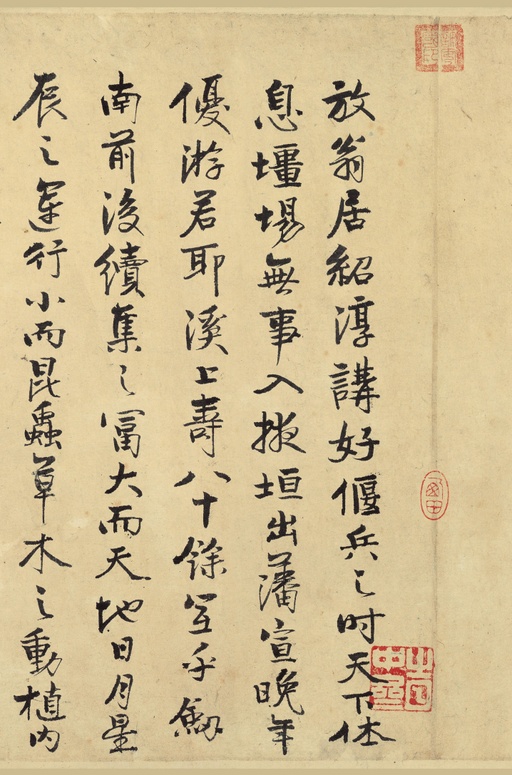 放翁居紹淳講好偃兵之時天下休
息壃埸無事入掖垣出藩宣晚年
優游若耶溪上壽八十餘宜乎劒
南前後續集之冨大而天地日月星
辰之運行小而昆蟲草木之動植内